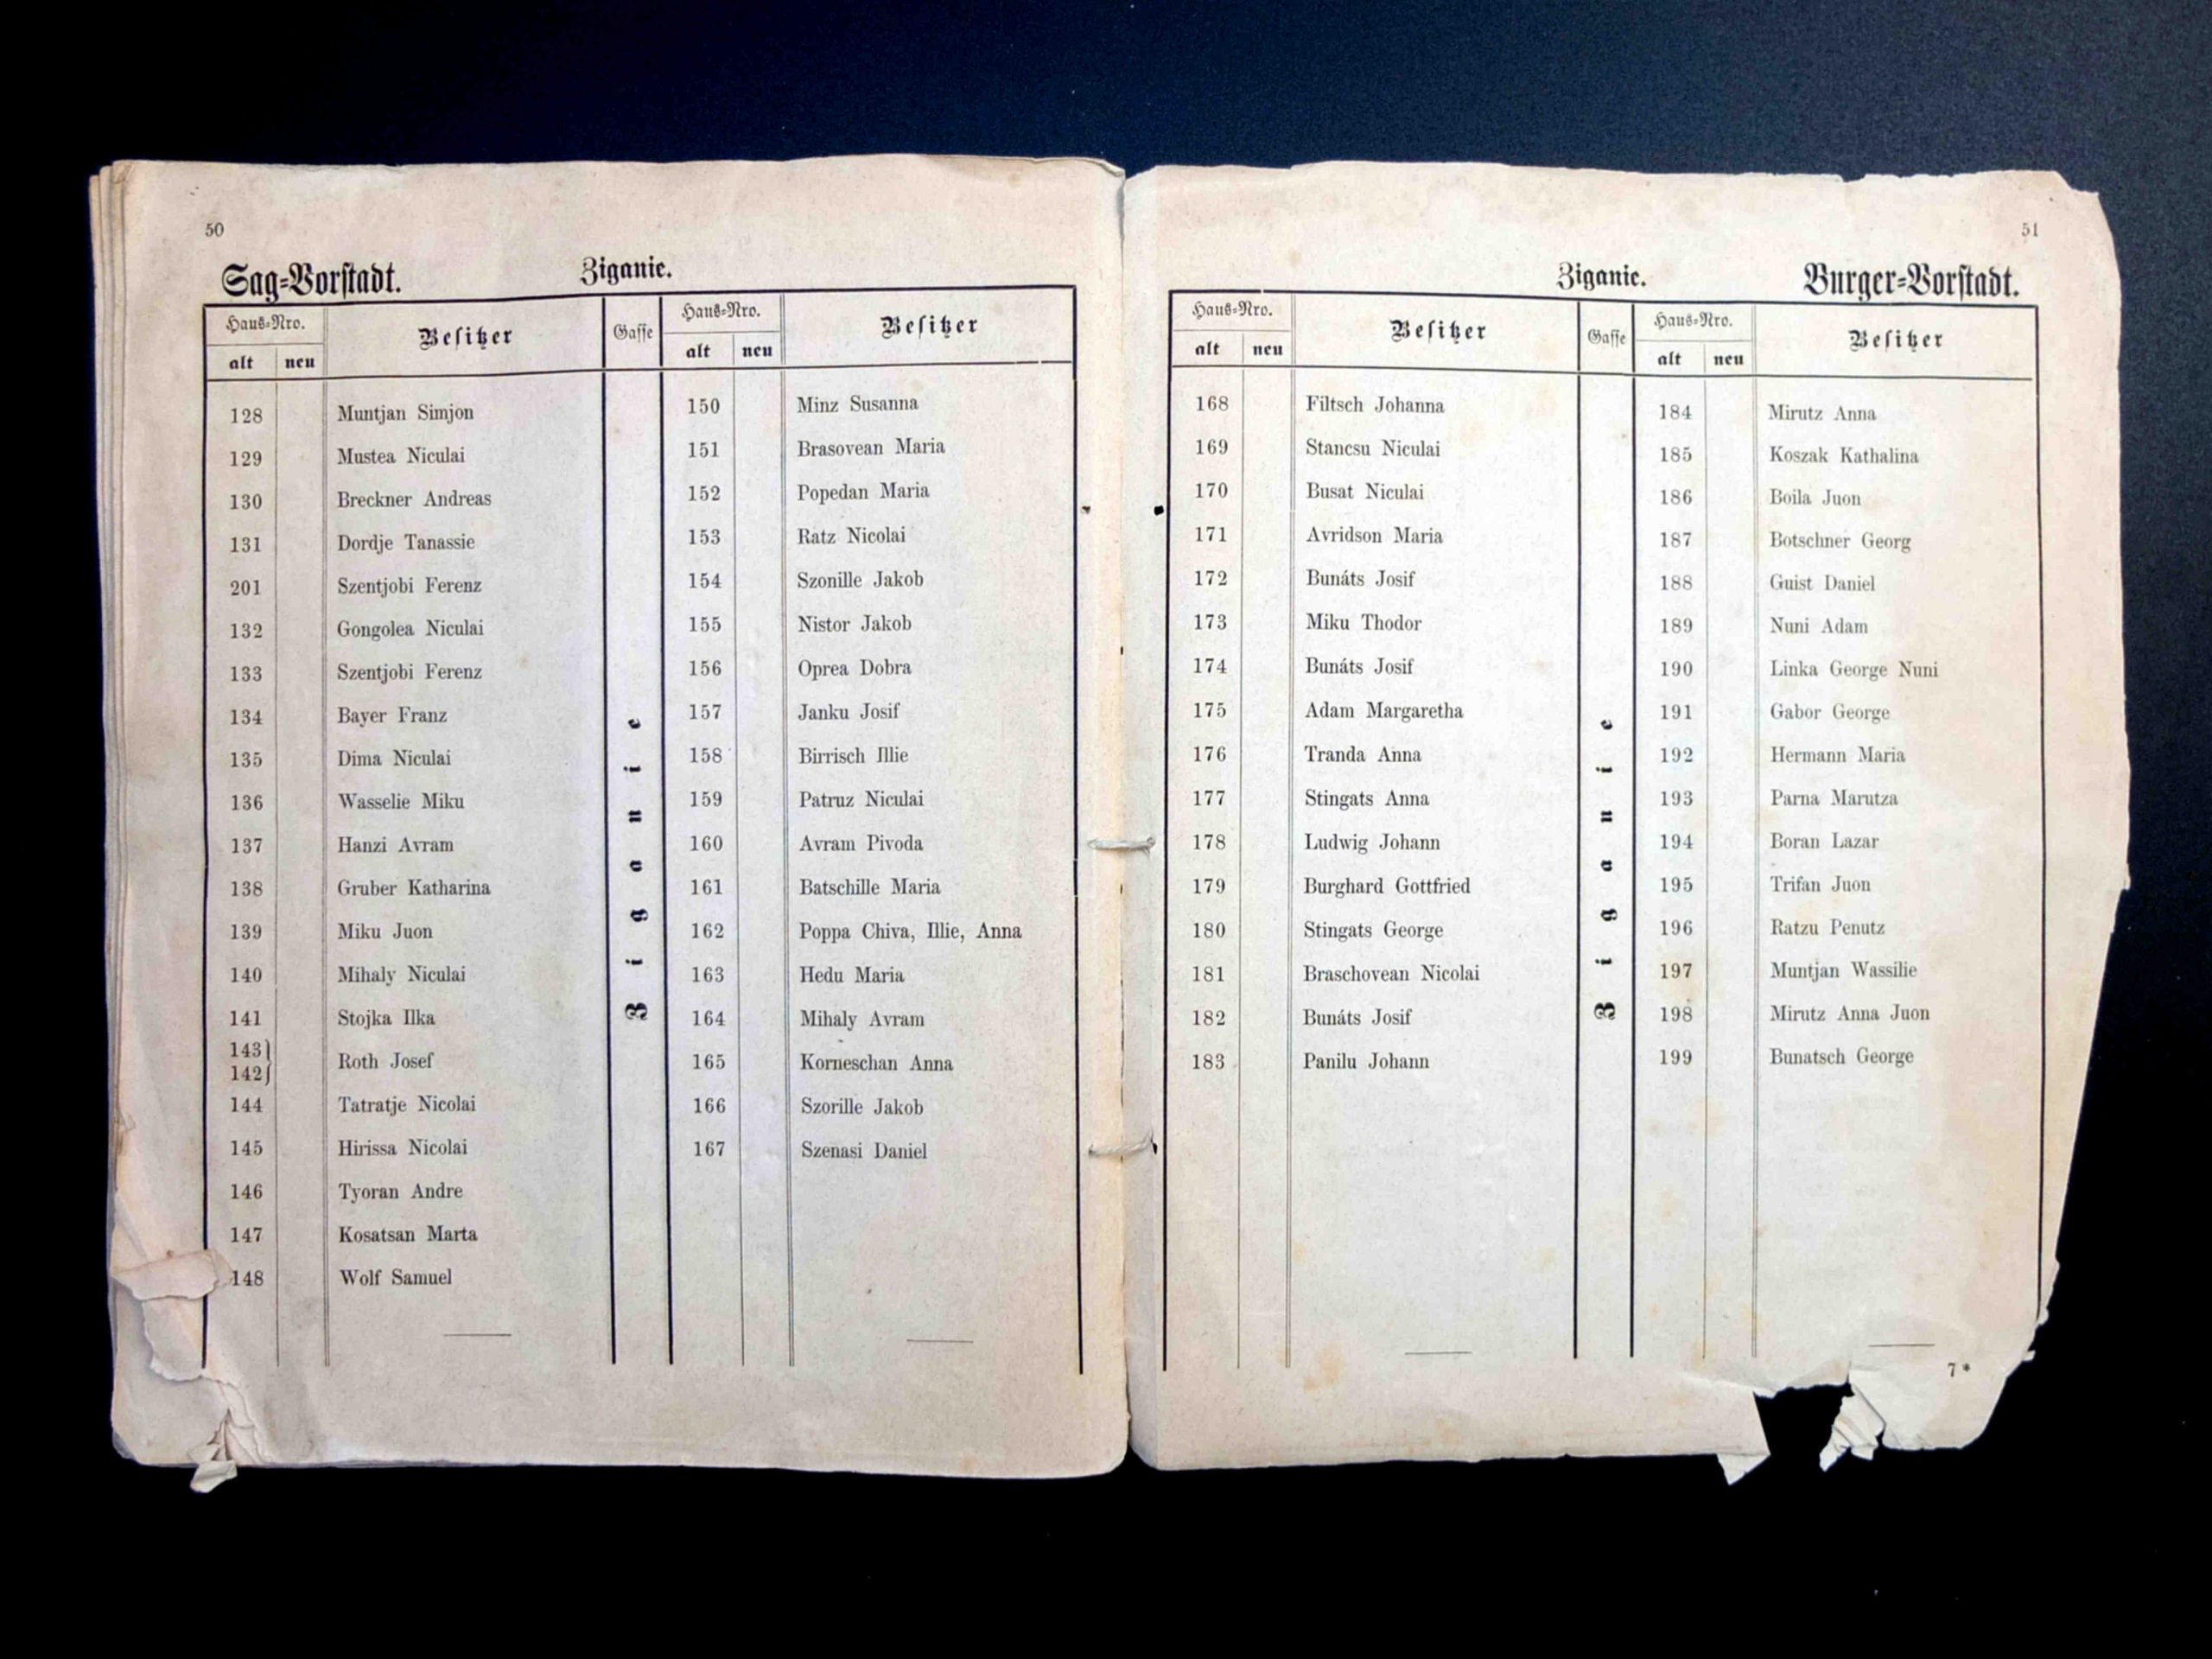 50
Sag-Vorstadt. Ziganie.
Haus-Nro. Besitzer Gasse Haus-Nro. Besitzer
alt neu alt neu
128 Muntjan Simjon
129 Mustea Niculai
130 Breckner Andreas
131 Dordje Tanassie
201 Szentjobi Ferenz
132 Gongolea Niculai
133 Szentjobi Ferenz
134 Bayer Franz
135 Dima Niculai
136 Wasselie Miku
137 Hanzi Avram
138 Gruber Katharina
139 Miku Juon
140 Mihaly Niculai
141 Stojka Ilka
143}
142} Roth Josef
144 Tatratje Nicolai
145 Hirissa Nicolai
146 Tyoran Andre
147 Kosatsan Marta
148 Wolf Samuel
Ziganie
150 Minz Susanna
151 Brasovean Maria
152 Popedan Maria
153 Ratz Nicolai
154 Szonille Jakob
155 Nistor Jakob
156 Oprea Dobra
157 Janku Josif
158 Birrisch Illie
159 Patruz Niculai
160 Avram Pivoda
161 Batschille Maria
162 Poppa Chiva, Illie, Anna
163 Hedu Maria
164 Mihaly Avram
165 Korneschan Anna
166 Szorille Jakob
167 Szenasi Daniel
51
Ziganie. Burger-Vorstadt.
Haus-Nro. Besitzer Gasse Haus-Nro. Besitzer
alt neu alt neu
168 Filtsch Johanna
169 Stancsu Niculai
170 Busat Niculai
171 Avridson Maria
172 Bunáts Josif
173 Miku Thodor
174 Bunáts Josif
175 Adam Margaretha
176 Tranda Anna
177 Stingats Anna
178 Ludwig Johann
179 Burghard Gottfried
180 Stingats George
181 Braschovean Nicolai
182 Bunáts Josif
183 Panilu Johann
Ziganie
184 Mirutz Anna
185 Koszak Kathalina
186 Boila Juon
187 Botschner Georg
188 Guist Daniel
189 Nuni Adam
190 Linka George Nuni
191 Gabor George
192 Hermann Maria
193 Parna Marutza
194 Boran Lazar
195 Trifan Juon
196 Ratzu Penutz
197 Muntjan Wassilie
198 Mirutz Anna Juon
199 Bunatsch George
7*